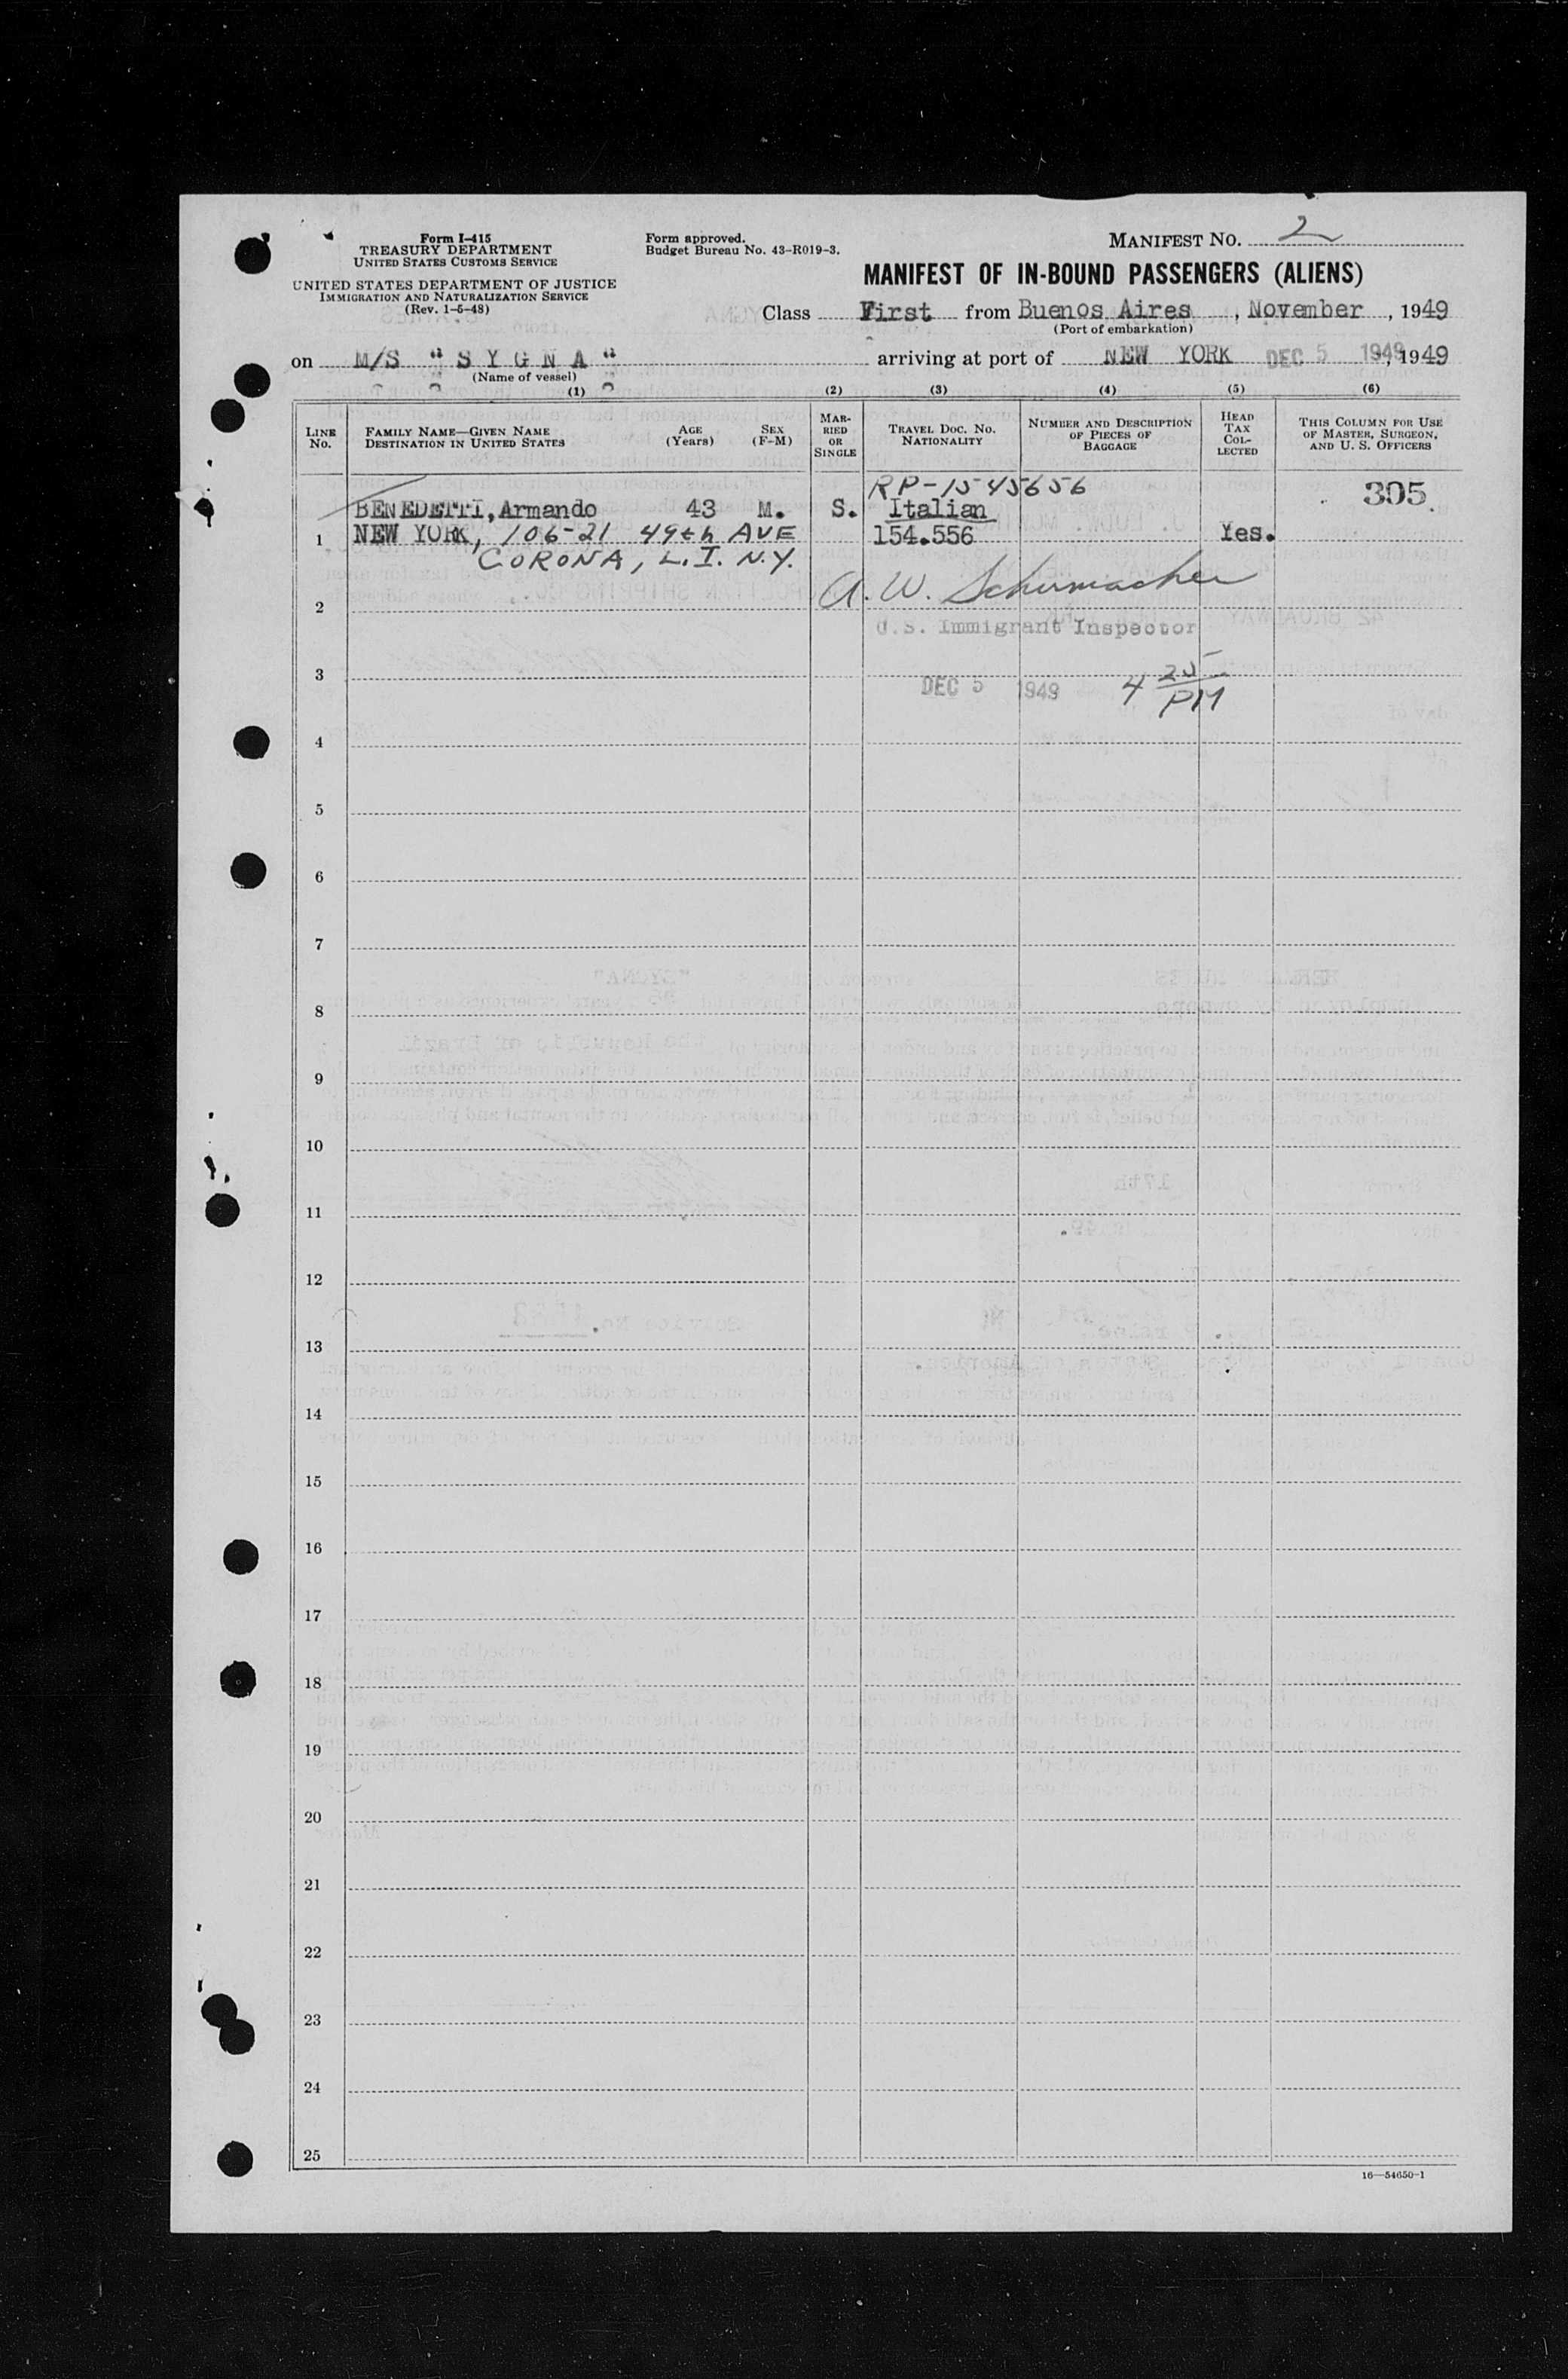 Form I-415
TREASURY DEPARTMENT
UNITED STATES CUSTOMS SERVICE
UNITED STATES DEPARTMENT OF JUSTICE
IMMIGRATION AND NATURALIZATION SERVICE
(Rev. 1-5-48)
Form approved.
Budget Bureau No. 43-R019-3.
MANIFEST NO. 2
MANIFEST OF IN-BOUND PASSENGERS (ALIENS)
Class First from Buenos Aires, November, 1949
(Port of embarkation)
on M/S "SYGNA" arriving at port of NEW YORK DEC 5 1949, 1949
(Name of vessel)
(1) (2) (3) (4) (5) (6)
LINE No.
FAMILY NAME—GIVEN NAME
DESTINATION IN UNITED STATES
AGE (Years)
SEX (F-M)
MARRIED OR SINGLE
TRAVEL DOC. NO.
NATIONALITY
NUMBER AND DESCRIPTION OF PIECES OF BAGGAGE
HEAD TAX COLLECTED
THIS COLUMN FOR USE OF MASTER, SURGEON, AND U. S. OFFICERS
RP-1545656
305
BENEDETTI, Armando 43 M. S. Italian
1 NEW YORK, 106-21 49th AVE 154.556 Yes.
CORONA, L.I. N.Y.
A. W. Schumacher
2
U.S. Immigrant Inspector
3
DEC 5 1949 4 25 PM
4
5
6
7
8
9
10
11
12
13
14
15
16
17
18
19
20
21
22
23
24
25
16—54650-1